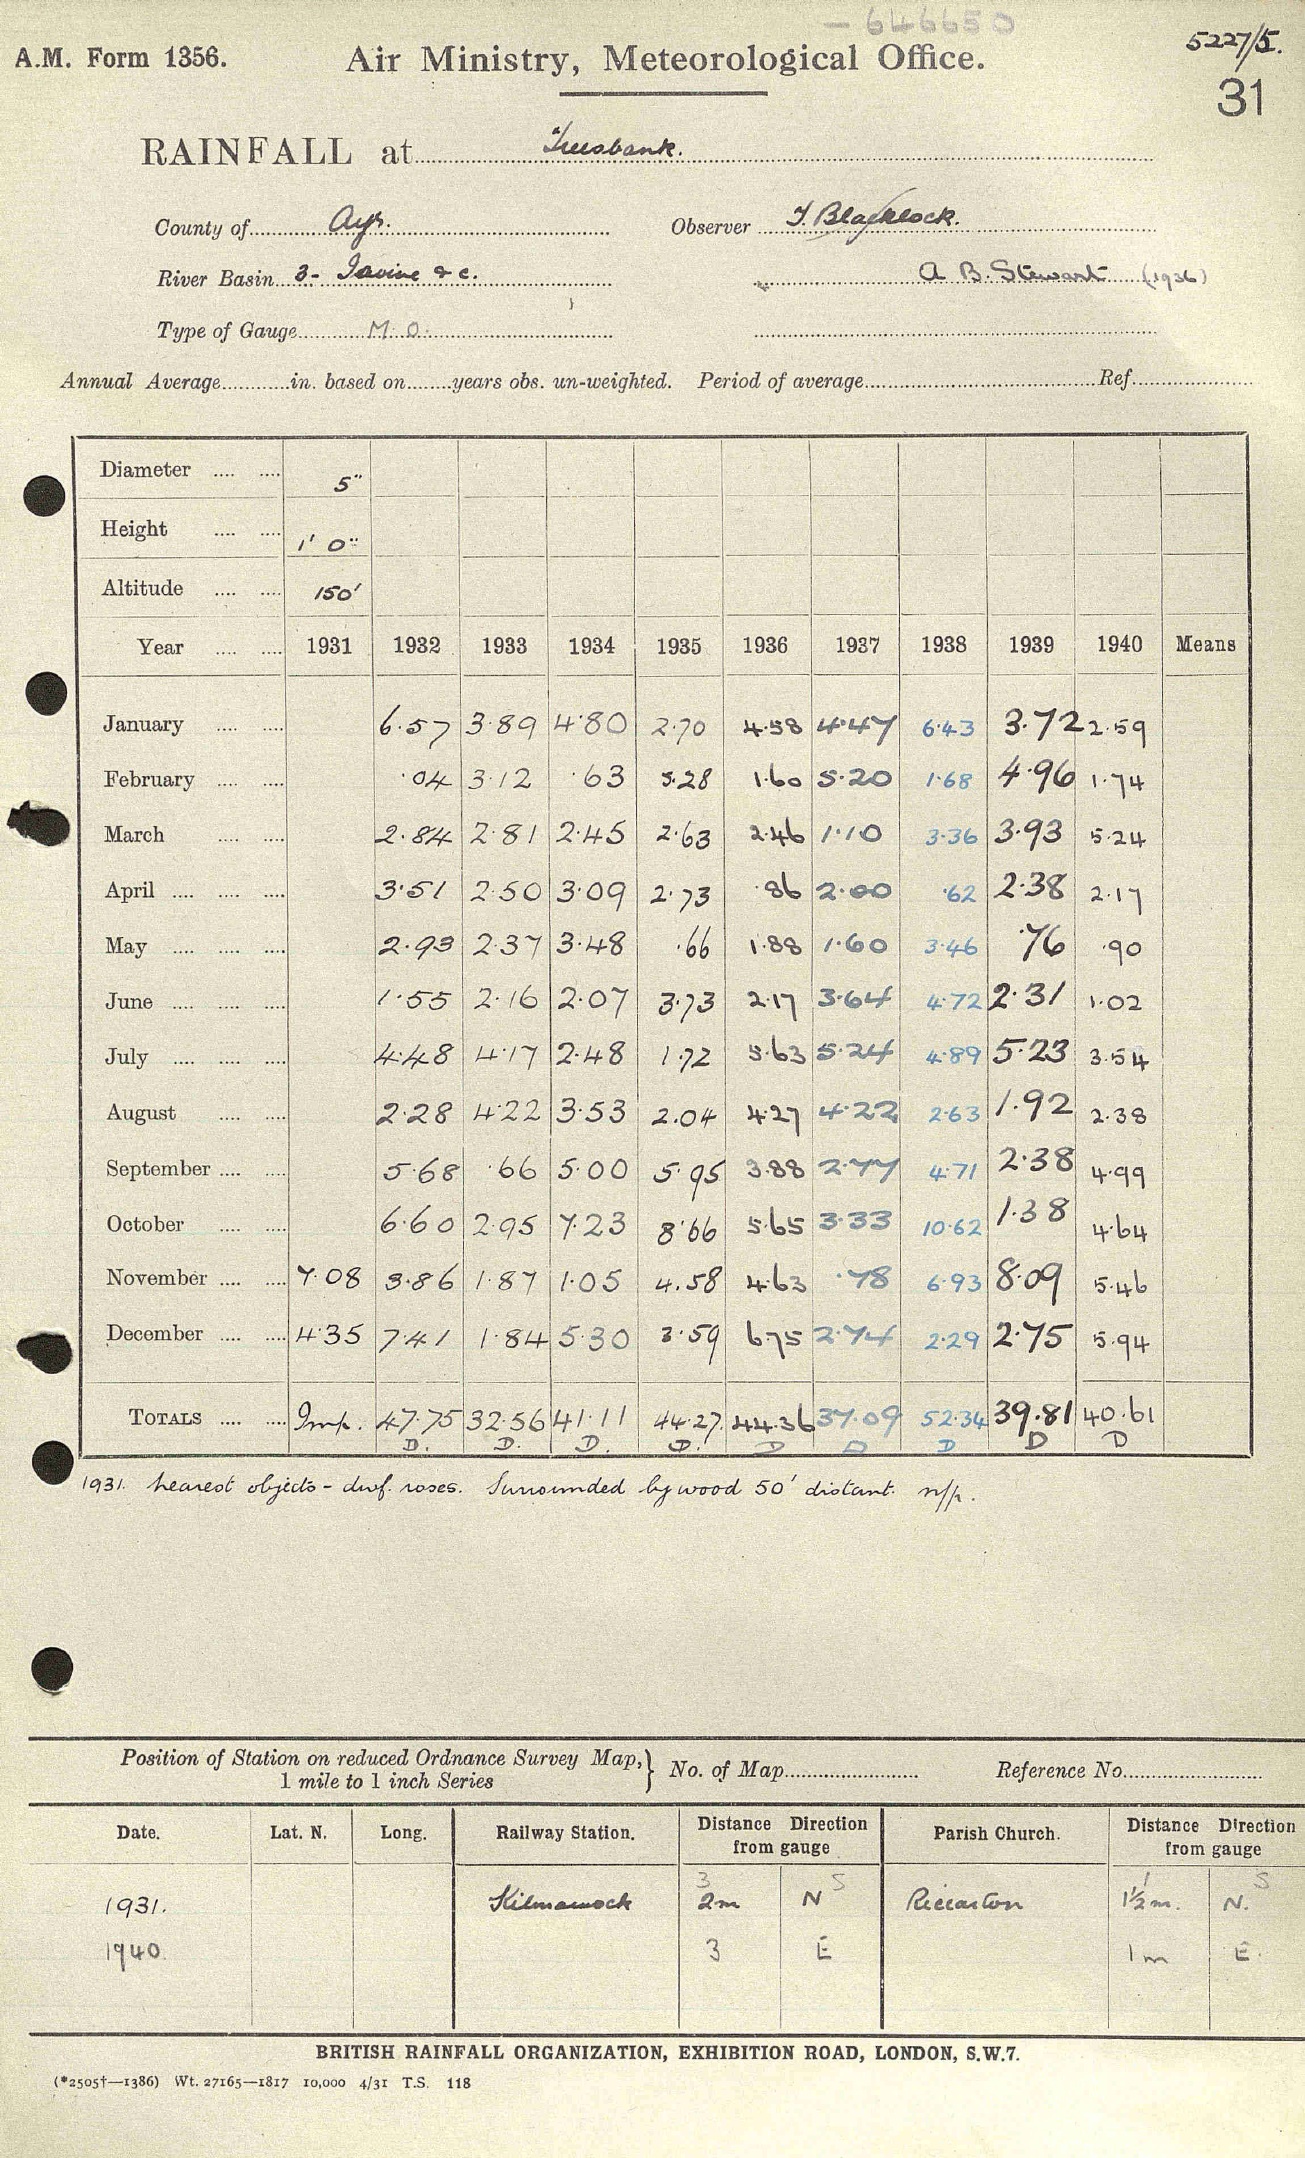 — 646650
A.M. Form 1356. Air Ministry, Meteorological Office. 5227/5.
31
RAINFALL at Treesbank.
County of Ayr. Observer T. Blacklock.
River Basin 3 - Irvine & c. A B. Stewart (1936)
Type of Gauge M. O.
Annual Average in. based on years obs. un-weighted. Period of average Ref.
Diameter 5"
Height 1' 0"
Altitude 150'
Year 1931 1932 1933 1934 1935 1936 1937 1938 1939 1940 Means
January 6.57 3.89 4.80 2.70 4.58 4.47 6.43 3.72 2.59
February .04 3.12 .63 5.28 1.60 5.20 1.68 4.96 1.74
March 2.84 2.81 2.45 2.63 2.46 1.10 3.36 3.93 5.24
April 3.51 2.50 3.09 2.73 .86 2.00 .62 2.38 2.17
May 2.93 2.37 3.48 .66 1.88 1.60 3.46 .76 .90
June 1.55 2.16 2.07 3.73 2.17 3.64 4.72 2.31 1.02
July 4.48 4.17 2.48 1.72 5.63 5.24 4.89 5.23 3.54
August 2.28 4.22 3.53 2.04 4.27 4.22 2.63 1.92 2.38
September 5.68 .66 5.00 5.95 3.88 2.77 4.71 2.38 4.99
October 6.60 2.95 7.23 8.66 5.65 3.33 10.62 1.38 4.64
November 7.08 3.86 1.87 1.05 4.58 4.63 .78 6.93 8.09 5.46
December 4.35 7.41 1.84 5.30 3.59 6.75 2.74 2.29 2.75 5.94
TOTALS Imp. 47.75 32.56 41.11 44.27 44.36 37.09 52.34 39.81 40.61
D. D. D. D. D D D D D
1931. nearest objects - dwf. roses. Surrounded by wood 50' distant. n/p.
Position of Station on reduced Ordnance Survey Map, } No. of Map Reference No.
1 mile to 1 inch Series
Date. Lat. N. Long. Railway Station. Distance Direction from gauge Parish Church. Distance Direction from gauge
3 S 1 S
1931. Kilmarnock 2m N Riccarton 1½m. N.
1940. 3 E 1m E.
BRITISH RAINFALL ORGANIZATION, EXHIBITION ROAD, LONDON, S.W.7.
(*2505†—1386) Wt. 27165—1817 10,000 4/31 T.S. 118